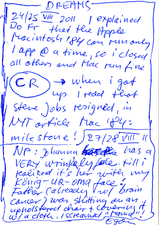 DREAMS
24/25 VIII 2011 I explained
to ET that the Apple
Macintosh 184 can run only
1 app @ a time, so i closed
all others and that run fine
CR → when i got
up i read that
Steve Jobs resigned, in
NYT article Mac 184=
milestone!
27/28 VIII 11
NP: has a
VERY wrinkly face till i
realized it's her with my
König-UR-OMA face
Father (already w/ brain
cancer) was shitting on an
upholstered chair + cleaning it
w/ a cloth, i screamed